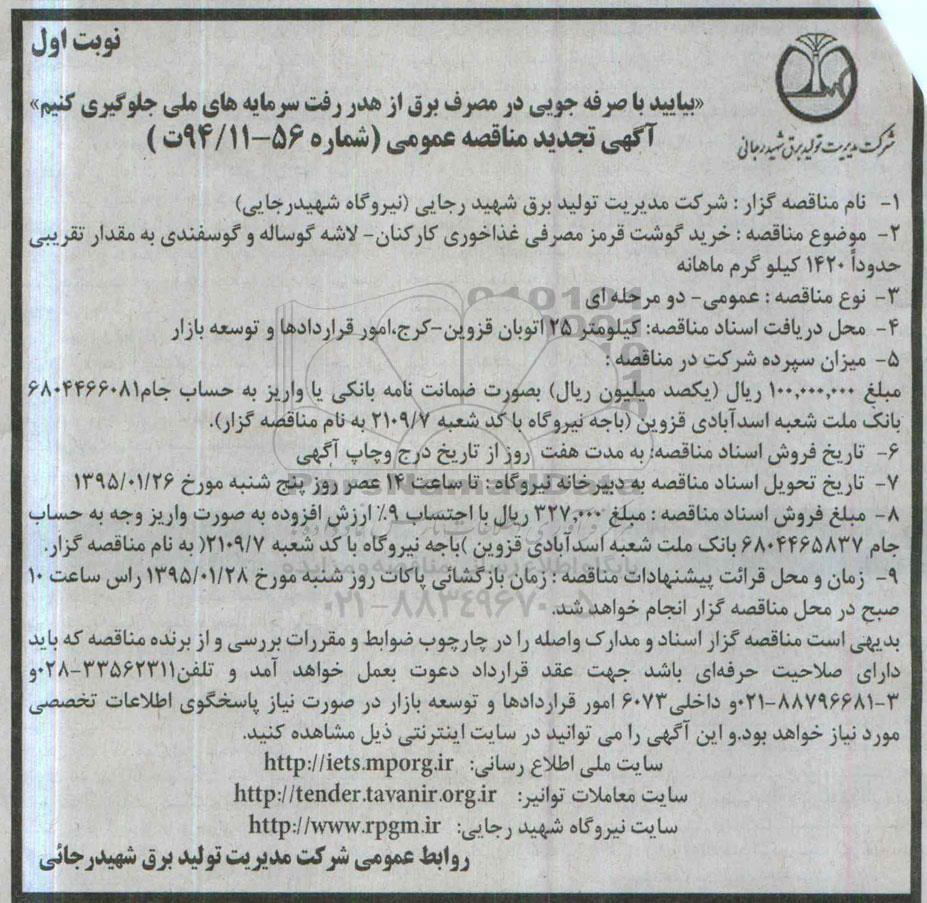 نوبت اول
«بیایید با صرفه جویی در مصرف برق از هدر رفت سرمایه های ملی جلوگیری کنیم»
آگهی تجدید مناقصه عمومی (شماره ۵۶-۹۴/۱۱ت )
شرکت مدیریت تولید برق شهید رجائی
۱- نام مناقصه گزار : شرکت مدیریت تولید برق شهید رجایی (نیروگاه شهیدرجایی)
۲- موضوع مناقصه : خرید گوشت قرمز مصرفی غذاخوری کارکنان- لاشه گوساله و گوسفندی به مقدار تقریبی
حدوداً ۱۴۲۰ کیلو گرم ماهانه
۳- نوع مناقصه : عمومی- دو مرحله ای
۴- محل دریافت اسناد مناقصه: کیلومتر ۲۵ اتوبان قزوین-کرج،امور قراردادها و توسعه بازار
۵- میزان سپرده شرکت در مناقصه :
مبلغ ۱۰۰,۰۰۰,۰۰۰ ریال (یکصد میلیون ریال) بصورت ضمانت نامه بانکی یا واریز به حساب جام۶۸۰۴۴۶۶۰۸۱
بانک ملت شعبه اسدآبادی قزوین (باجه نیروگاه با کد شعبه ۲۱۰۹/۷ به نام مناقصه گزار).
۶- تاریخ فروش اسناد مناقصه: به مدت هفت روز از تاریخ درج وچاپ آگهی
۷- تاریخ تحویل اسناد مناقصه به دبیرخانه نیروگاه : تا ساعت ۱۴ عصر روز پنج شنبه مورخ ۱۳۹۵/۰۱/۲۶
۸- مبلغ فروش اسناد مناقصه : مبلغ ۳۲۷,۰۰۰ ریال با احتساب ۹٪ ارزش افزوده به صورت واریز وجه به حساب
جام ۶۸۰۴۴۶۵۸۳۷ بانک ملت شعبه اسدآبادی قزوین )باجه نیروگاه با کد شعبه ۲۱۰۹/۷( به نام مناقصه گزار.
۹- زمان و محل قرائت پیشنهادات مناقصه : زمان بازگشائی پاکات روز شنبه مورخ ۱۳۹۵/۰۱/۲۸ راس ساعت ۱۰
صبح در محل مناقصه گزار انجام خواهد شد.
بدیهی است مناقصه گزار اسناد و مدارک واصله را در چارچوب ضوابط و مقررات بررسی و از برنده مناقصه که باید
دارای صلاحیت حرفه‌ای باشد جهت عقد قرارداد دعوت بعمل خواهد آمد و تلفن۳۳۵۶۲۳۱۱-۰۲۸و
۳-۸۸۷۹۶۶۸۱-۰۲۱و داخلی۶۰۷۳ امور قراردادها و توسعه بازار در صورت نیاز پاسخگوی اطلاعات تخصصی
مورد نیاز خواهد بود.و این آگهی را می توانید در سایت اینترنتی ذیل مشاهده کنید.
سایت ملی اطلاع رسانی: http://iets.mporg.ir
سایت معاملات توانیر: http://tender.tavanir.org.ir
سایت نیروگاه شهید رجایی: http://www.rpgm.ir
روابط عمومی شرکت مدیریت تولید برق شهیدرجائی
ParsNamadData
۰۲۱-۸۸۳۴۹۶۷۰-۵